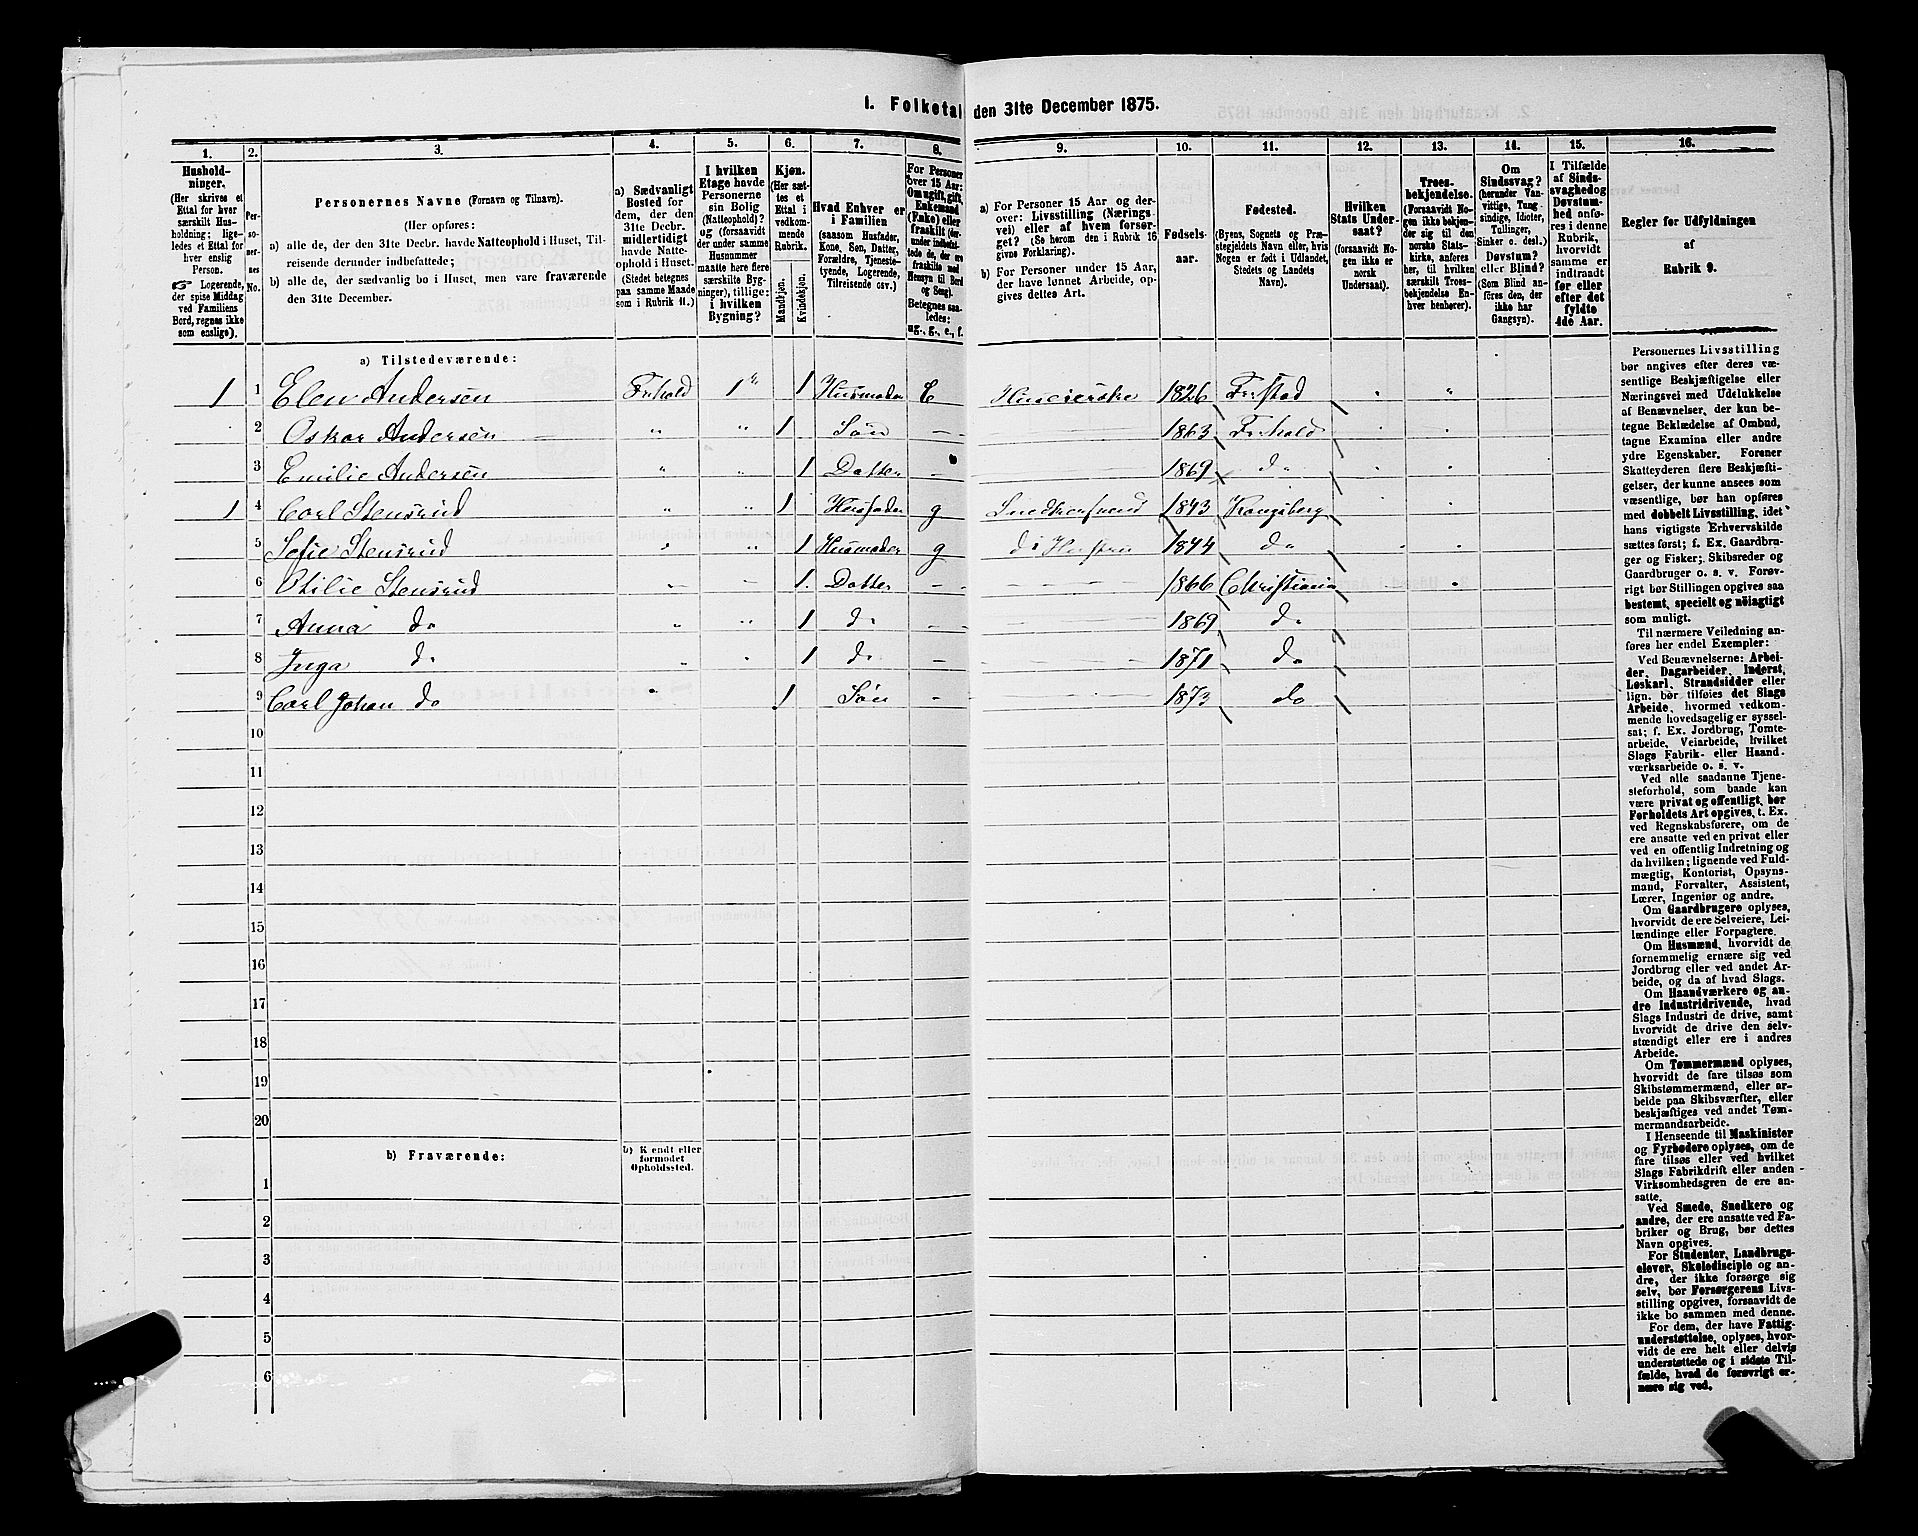 I. Folketal den 31te December 1875.
1. 2. 3. 4. 5. 6. 7. 8. 9. 10. 11. 12. 13. 14. 15. 16.
Husholdninger.
(Her skrives et
Ettal for hver
særskilt Husholdning;
ligeledes et Ettal for
hver enslig
Person.
☞ Logerende,
der spise Middag
ved Familiens
Bord, regnes ikke
som enslige).
Personernes No.
Personernes Navne (Fornavn og Tilnavn).
(Her opføres:
a) alle de, der den 31te Decbr. havde Natteophold i Huset, Tilreisende
derunder indbefattede;
b) alle de, der sædvanlig bo i Huset, men vare fraværende
den 31te December.
a) Sædvanligt
Bosted for
dem, der den
31te Decbr.
midlertidigt
havde Natteophold
i Huset.
(Stedet betegnes
paa samme Maade
som i Rubrik 11.)
I hvilken
Etage havde
Personerne
sin Bolig
(Natteophold)?
og (forsaavidt
der under samme
Husnummer
maatte høre flere
særskilte Bygninger),
tillige:
i hvilken
Bygning?
Kjøn.
(Her sættes
et
Ettal i
vedkommende
Rubrik.
Mandkjøn.
Kvindekjøn.
Hvad Enhver er
i Familien
(saasom Husfader,
Kone, Søn, Datter,
Forældre, Tjenestetyende,
Logerende,
Tilreisende osv.)
For Personer
over 15 Aar:
Om ugift, gift,
Enkemand
(Enke) eller
fraskilt (derunder
indbefattede
de, der ere
fraskilte med
Hensyn til Bord
og Seng).
Betegnes saaledes:
ug., g., e., f.
a) For Personer 15 Aar og derover:
Livsstilling (Næringsvei)
eller af hvem forsørget?
(Se herom den i Rubrik 16
givne Forklaring).
b) For Personer under 15 Aar,
der have lønnet Arbeide, opgives
dettes Art.
Fødselsaar.
Fødested.
(Byens, Sognets og Præstegjeldets
Navn eller, hvis
Nogen er født i Udlandet,
Stedets og Landets
Navn).
Hvilken
Stats Undersaat?
(forsaavidt Nogen
ikke er
norsk
Undersaat).
Troesbekjendelse.
(Forsaavidt Nogen
ikke bekjender
sig til den
norske Statskirke,
anføres
her, til hvilken
særskilt Troesbekjendelse
Enhver
henhører).
Om
Sindssvag?
(herunder Vanvittige,
Tungsindige,
Idioter,
Tullinger,
Sinker o. desl.)
Døvstum?
eller Blind?
(Som Blind anføres
den, der
ikke har
Gangsyn).
I Tilfælde
af Sindssvaghed og
Døvstumhed
anføres
i denne
Rubrik,
hvorvidt
samme er
indtraadt
før eller
efter det
fyldte
4de Aar.
Regler for Udfyldningen
af
Rubrik 9.
a) Tilstedeværende:
1 1 Elen Andersen Frhald 1 " 1 Husmoder E 1826 Fr.stad
2 Oskar Andersen " " 1 Søn — 1863 Frhald
3 Emilie Andersen " " 1 Datter — 1869 do
1 4 Carl Stensrud " " 1 Husfader g Snedkersvend 1843 Kongsberg
5 Sofie Stensrud " " 1 Husmoder g d: Hustru 1844 do
6 Otilie Stensrud " " 1 Datter — 1866 Christiania
7 Anna do " " 1 do — 1869 do
8 Inga do " " 1 do — 1871 do
9 Carl Johan do " 1 Søn — 1873 do
10
11
12
13
14
15
16
17
18
19
20
b) Fraværende: b) Kjendt eller
formodet
Opholdssted.
1
2
3
4
5
6
Personernes Livsstilling
bør angives efter deres væsentlige
Beskjæftigelse eller
Næringsvei med Udelukkelse
af Benævnelser, der kun betegne
Beklædelse af Ombud,
tagne Examina eller andre
ydre Egenskaber. Forener
Skatteyderen flere Beskjæftigelser,
der kunne ansees som
væsentlige, bør han opføres
med dobbelt Livsstilling, idet
hans vigtigste Erhvervskilde
sættes først; f. Ex. Gaardbruger
og Fisker; Skibsreder og
Gaardbruger o. s. v. Forøvrigt
bør Stillingen opgives saa
bestemt, specielt og nøiagtigt
som muligt.
Til nærmere Veiledning anføres
her endel Exempler:
Ved Benævnelserne: Arbeider,
Dagarbeider, Inderst,
Løskarl, Strandsidder eller
lign. bør tilføies det Slags
Arbeide, hvormed vedkommende
hovedsagelig er sysselsat;
f. Ex. Jordbrug, Tomtearbeide,
Veiarbeide, hvilket
Slags Fabrik- eller Haandværksarbeide
o. s. v.
Ved alle saadanne Tjenesteforhold,
som baade kan
være privat og offentligt, bør
Forholdets Art opgives, t. Ex.
ved Regnskabsførere, om de
ere ansatte ved en privat eller
ved en offentlig Indretning og
da hvilken; lignende ved Fuldmægtig,
Kontorist, Opsynsmand,
Forvalter, Assistent,
Lærer, Ingeniør og andre.
Om Gaardbrugere oplyses,
hvorvidt de ere Selveiere, Leilændinge
eller Forpagtere.
Om Husmænd, hvorvidt de
fornemmelig ernære sig ved
Jordbrug eller ved andet Arbeide,
og da af hvad Slags.
Om Haandværkere og andre
Industridrivende, hvad
Slags Industri de drive, samt
hvorvidt de drive den selvstændigt
eller ere i andres
Arbeide.
Om Tømmermænd oplyses,
hvorvidt de fare tilsøs som
Skibstømmermænd, eller arbeide
paa Skibsværfter, eller
beskjæftiges ved andet Tømmermandsarbeide.
I Henseende til Maskinister
og Fyrbødere oplyses, om de
fare tilsøs eller ved hvilket
Slags Fabrikdrift eller anden
Virksomhedsgren de ere ansatte.
Ved Smede, Snedkere og
andre, der ere ansatte ved Fabriker
og Brug, bør dettes
Navn opgives.
For Studenter, Landbrugselever,
Skoledisciple og andre,
der ikke forsørge sig
selv, bør Forsørgerens Livsstilling
opgives, forsaavidt de
ikke bo sammen med denne.
For dem, der have Fattigunderstøttelse,
oplyses, hvorvidt
de ere helt eller delvis
understøttede og i sidste Tilfælde,
hvad de forøvrigt ernære
sig ved.